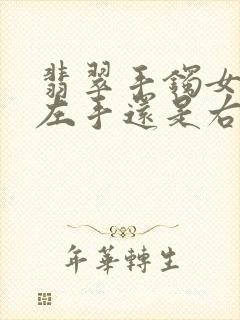 翡翠手鐲女
左手還是右
年華轉生